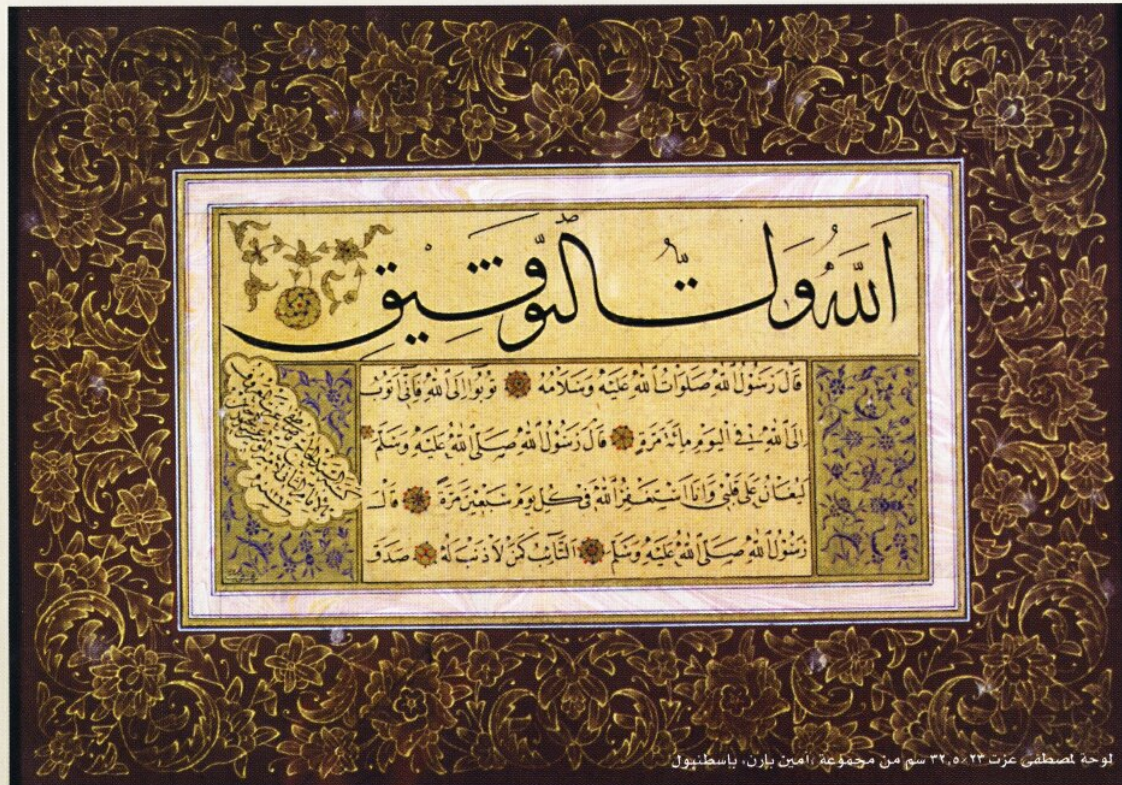 اَللّٰهُ وَلِيُّ التَّوْفِيقِ
قَالَ رَسُولُ اللّٰهِ صَلَوَاتُ اللّٰهِ عَلَيْهِ وَسَلَامُهُ تُوبُوا إِلَى اللّٰهِ فَإِنِّي أَتُوبُ
إِلَى اللّٰهِ فِي الْيَوْمِ مِائَةَ مَرَّةٍ قَالَ رَسُولُ اللّٰهِ صَلَّى اللّٰهُ عَلَيْهِ وَسَلَّمَ
لَيُغَانُ عَلَى قَلْبِي وَأَنَا أَسْتَغْفِرُ اللّٰهَ فِي كُلِّ يَوْمٍ سَبْعِينَ مَرَّةً قَالَ
رَسُولُ اللّٰهِ صَلَّى اللّٰهُ عَلَيْهِ وَسَلَّمَ التَّائِبُ كَمَنْ لَا ذَنْبَ لَهُ صَدَقَ
لوحة لمصطفى عزت ٢٣×٣٢,٥ سم من مجموعة امين بارن، باسطنبول